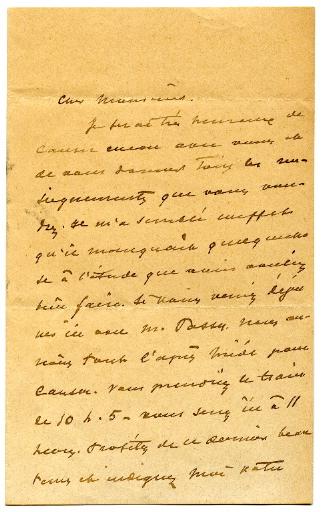 Cher Monsieur.
Je serai très heureux de
causer encore avec vous et
de vous donner tous les ren-
seignements que vous vou-
drez. Il m'a semblé en effet
qu'il manquait quelque cho
se à l'étude que vous voulez
bien faire. Si vous venez déjeu
ner ici avec M. Passy, nous au-
rons tout l'après midi pour
causer. Vous prendriez le train
de 10 h. 5 - vous serez ici à 11
heures. Profitez de ce dernier beau
temps et indiquez moi votre